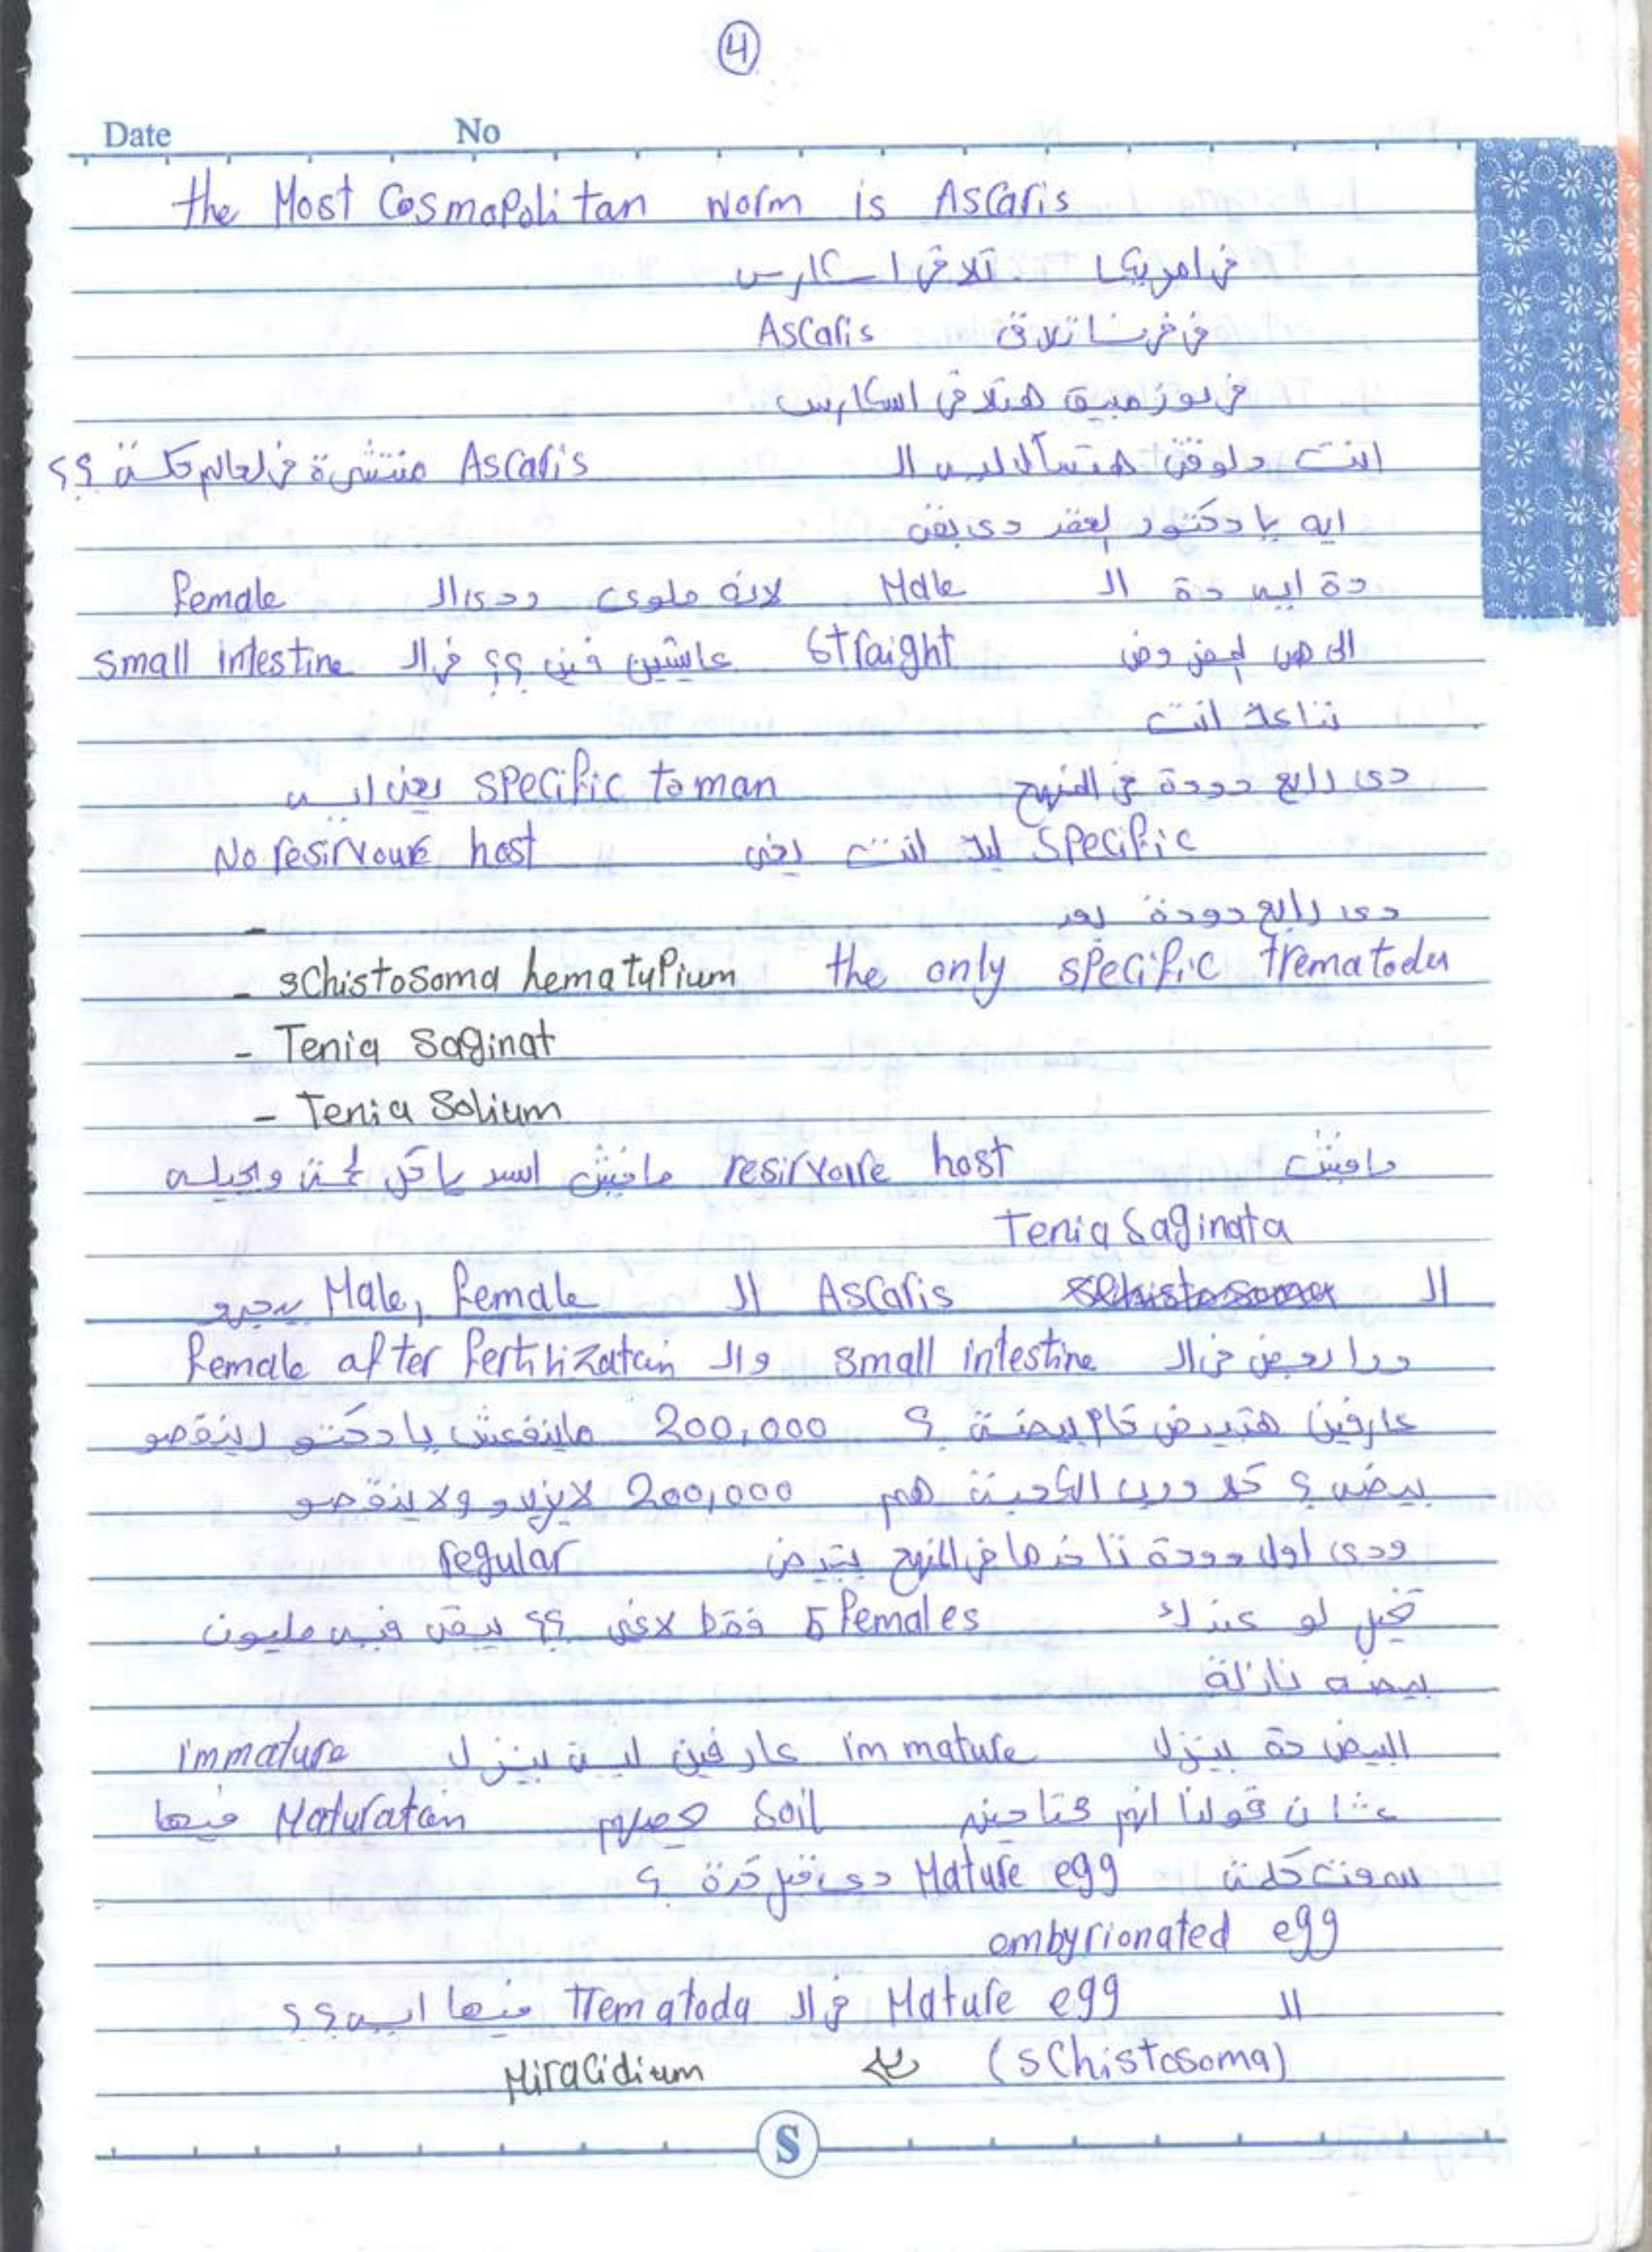 4
Date No
the Most Cosmopolitan worm is Ascaris
في امريكا تلاقي اسكارس
في فرنسا تلاقي Ascaris
في موزمبيق هتلاقي اسكارس
انت دلوقتي هتسأل ليه ال Ascaris منتشرة في العالم كدة ؟؟
ايه يا دكتور الفقر دى بقى
دة ايه دة ال Male لانه ملوى ودى ال female
الى هى المفروض straight عايشين فين ؟؟ في ال small intestine
بتاعك انت
دى رابع دودة في المنهج specific to man يعنى ايه
specific ليك انت يعنى No resirvoure host
دى رابع دودة بعد
-
- schistosoma hematupium the only specific trematodu
- Tenia saginat
- Tenia Solium
مافيش resirvoire host مافيش اسد ياكل لحمة ويجيله
Tenia Saginata
ال Ascaris ال Male, female بيجيو
في ال small intestine وال female after fertilizatain
عارفين هتبيض كام بيضة ؟ 200,000 ماينفعش يا دكتو رينقصو
بيضه ؟ كدة دين الكحبة هم 200,000 لايزيدو ولا ينقصو
ودى اول دودة تاخدها في المنهج بتبيض regular
تخيل لو عندك 5 females فقط لاغى ؟؟ يبقى فيه مليون
بيضه نازلة
البيض دة بينزل immature عارفين لية بينزل immature
عشان قولنا انهم محتاجين soil يحصلهم Maturatain فيها
سمعت كلمة Mature egg دى قبل كدة ؟
embyrionated egg
ال Mature egg في ال Trematoda فيها ايه ؟؟
(schistosoma) Miracidium
S